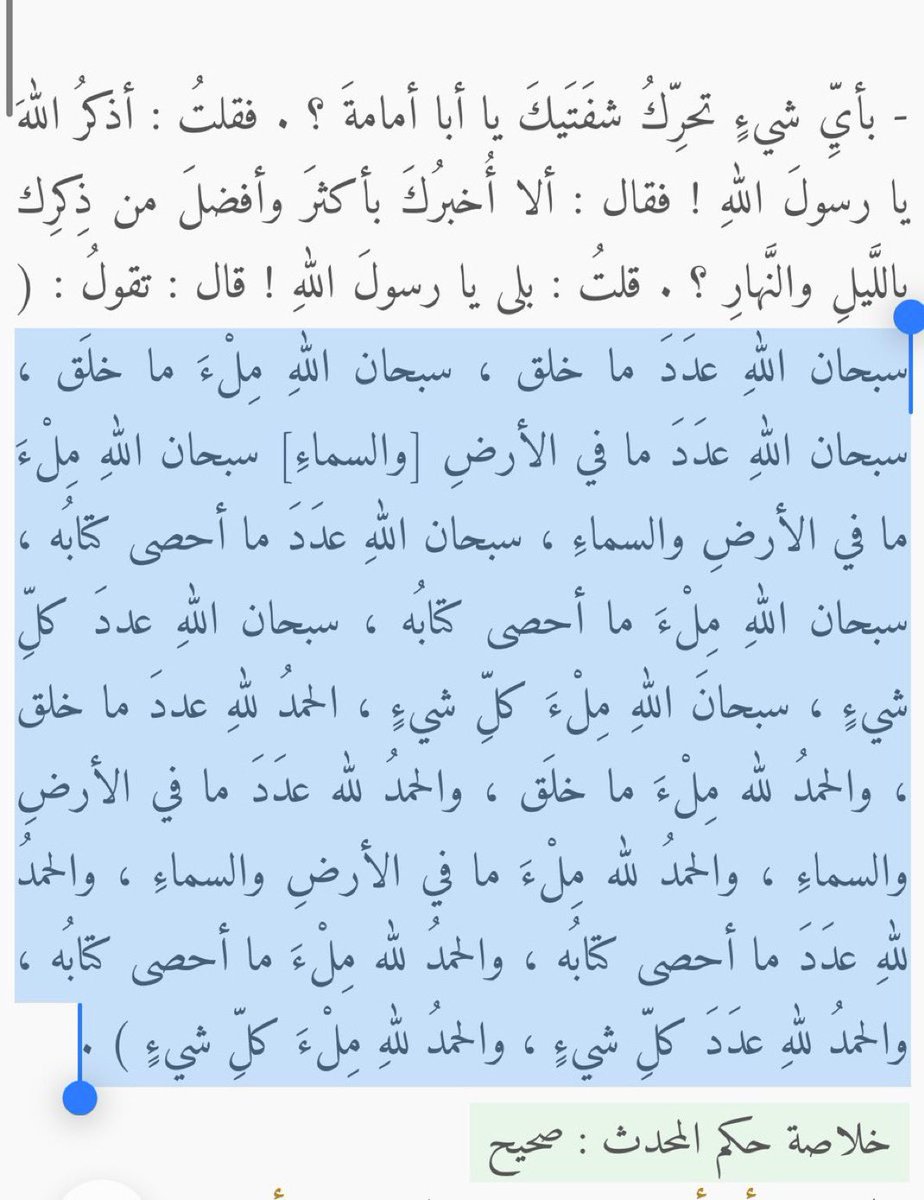 - بأيِّ شيءٍ تحرِّكُ شفَتَيكَ يا أبا أمامةَ ؟ . فقلتُ : أذكرُ اللهَ
يا رسولَ اللهِ ! فقال : ألا أُخبرُكَ بأكثرَ وأفضلَ من ذِكرِك
باللَّيلِ والنَّهارِ ؟ . قلتُ : بلى يا رسولَ اللهِ ! قال : تقولُ : (
سبحان اللهِ عدَدَ ما خلق ، سبحان اللهِ مِلْءَ ما خلَق ،
سبحان اللهِ عدَدَ ما في الأرضِ [والسماءِ] سبحان اللهِ مِلْءَ
ما في الأرضِ والسماءِ ، سبحان اللهِ عدَدَ ما أحصى كتابُه ،
سبحان اللهِ مِلْءَ ما أحصى كتابُه ، سبحان اللهِ عددَ كلِّ
شيءٍ ، سبحانَ اللهِ مِلْءَ كلِّ شيءٍ ، الحمدُ للهِ عددَ ما خلق
، والحمدُ لله مِلْءَ ما خلَق ، والحمدُ لله عدَدَ ما في الأرضِ
والسماءِ ، والحمدُ لله مِلْءَ ما في الأرضِ والسماءِ ، والحمدُ
للهِ عدَدَ ما أحصى كتابُه ، والحمدُ لله مِلْءَ ما أحصى كتابُه ،
والحمدُ للهِ عدَدَ كلِّ شيءٍ ، والحمدُ للهِ مِلْءَ كلِّ شيءٍ ) .
خلاصة حكم المحدث : صحيح